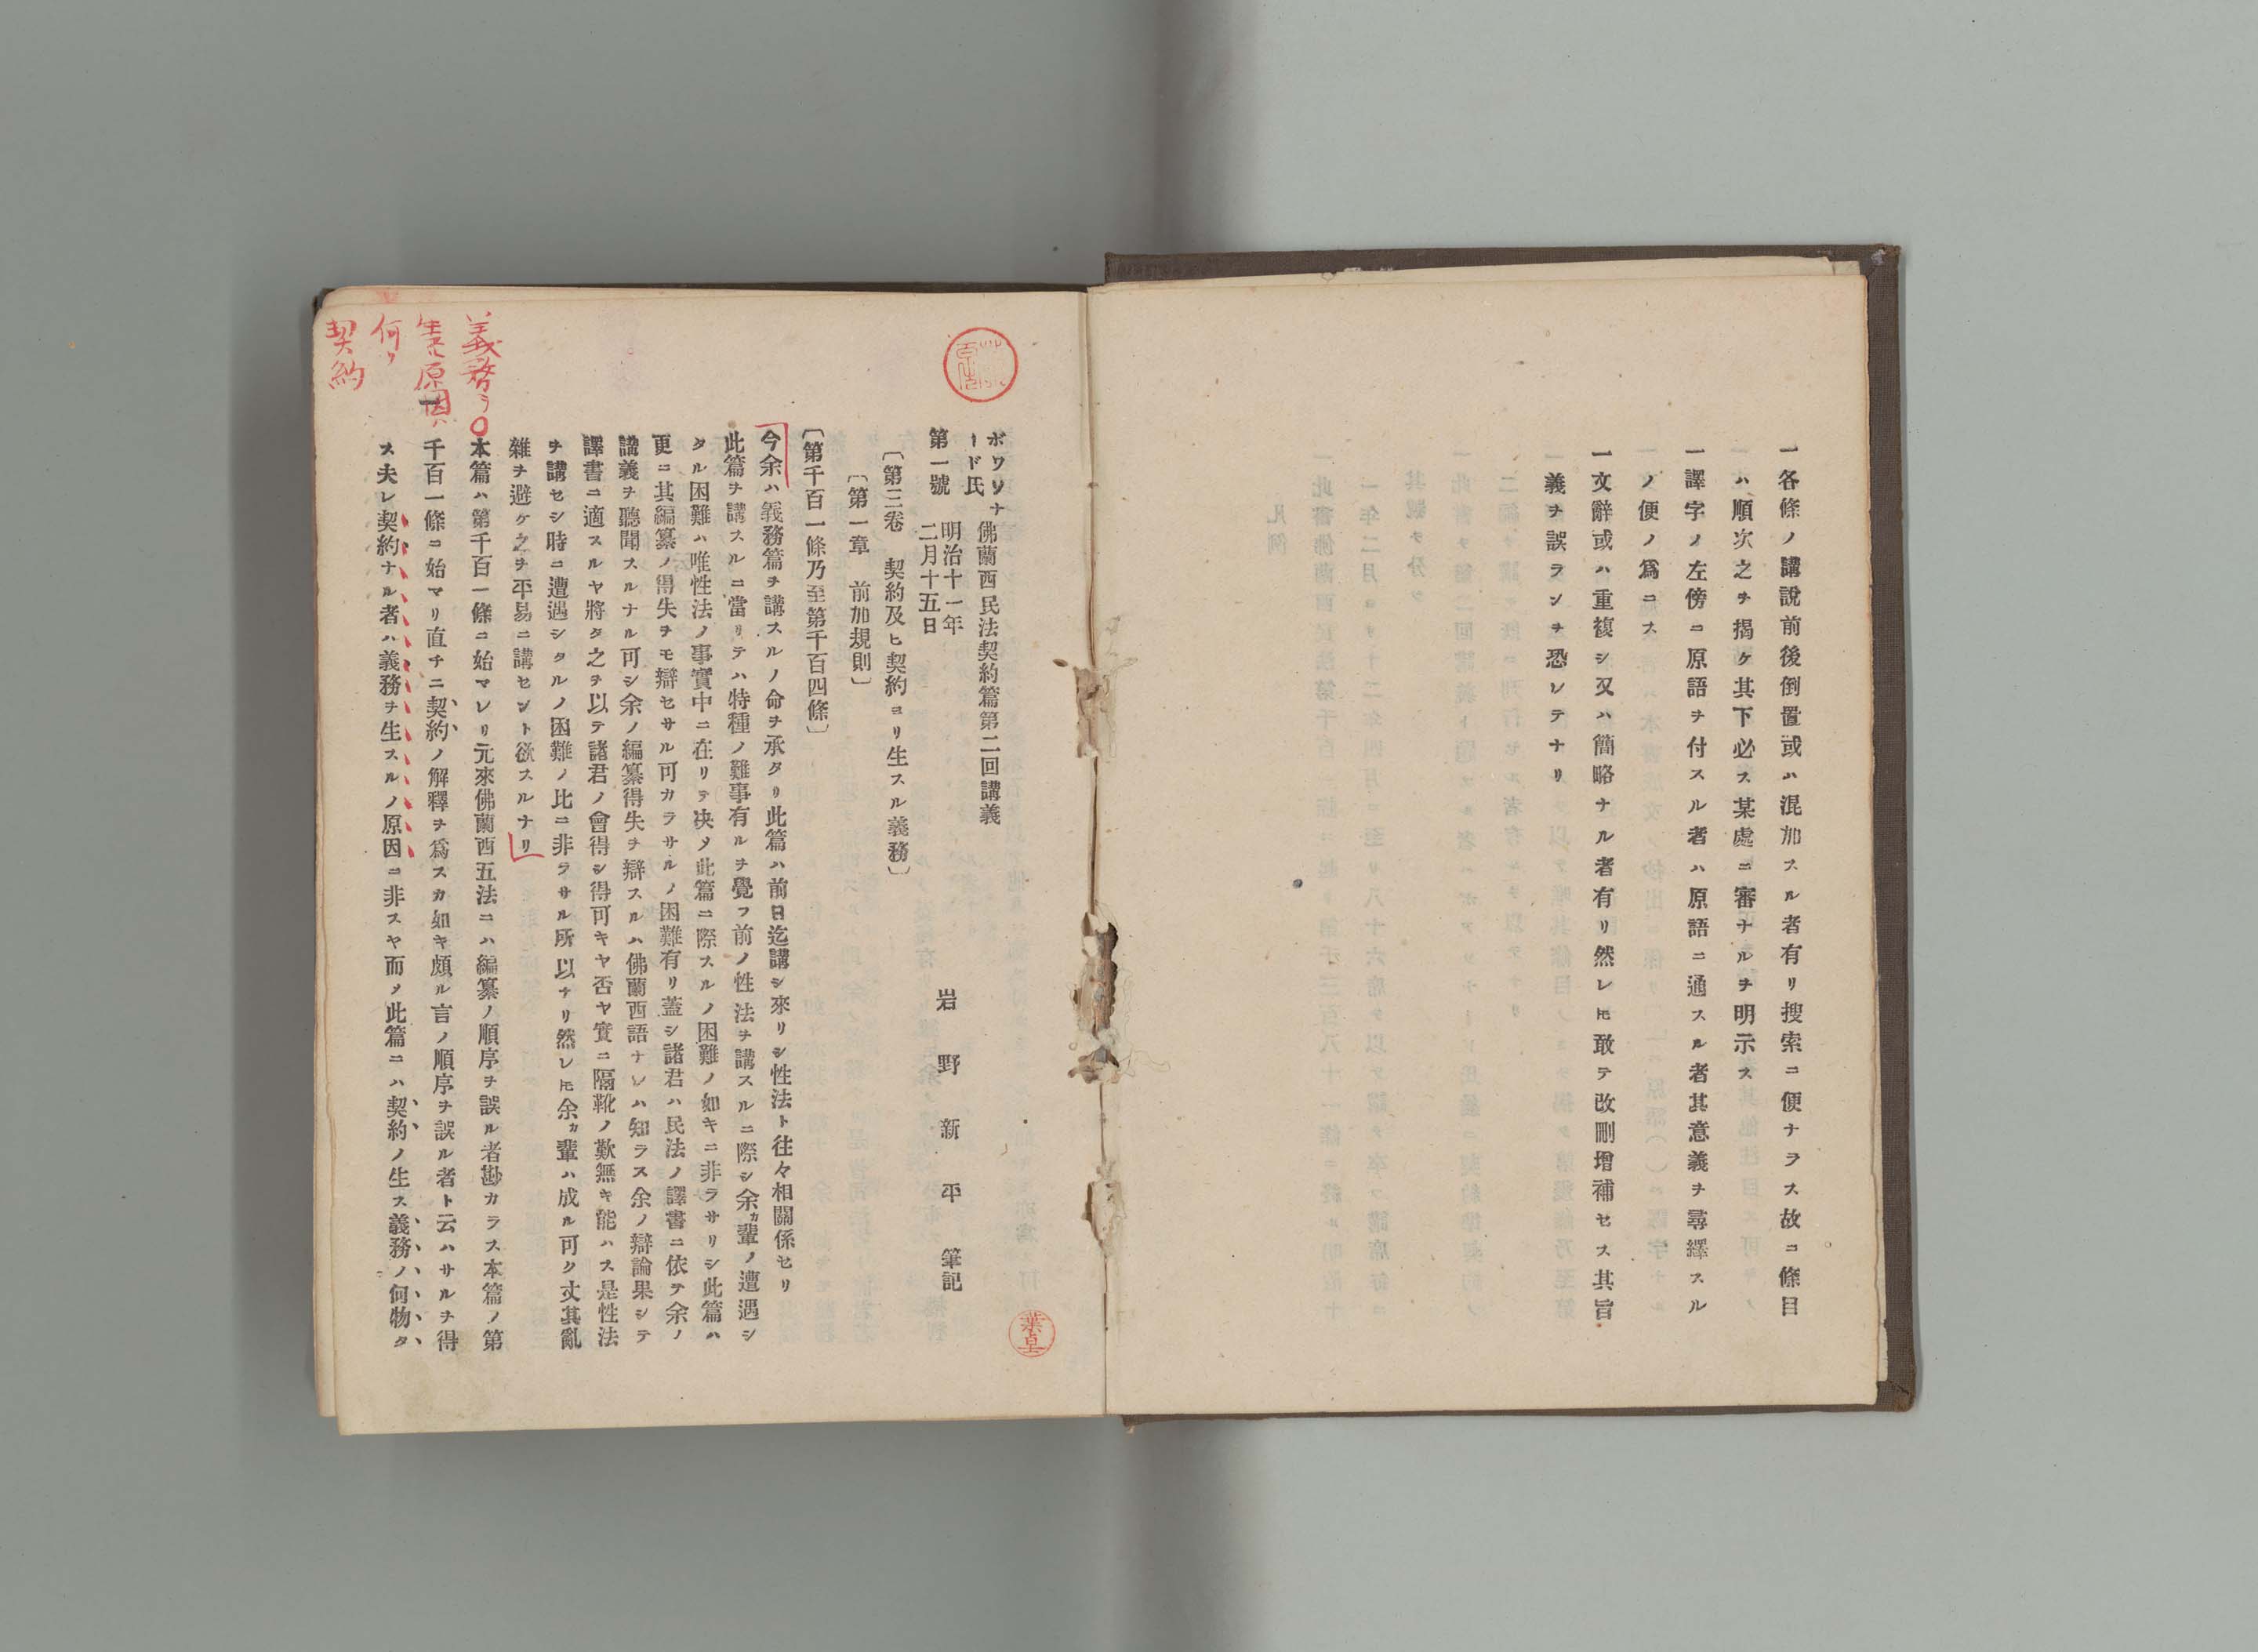 一各條ノ講說前後倒置或ハ混加スル者有リ搜索ニ便ナラス故ニ條目
ハ順次之ヲ揭ケ其下必ス某處ニ審ナルヲ明示ス
一譯字ノ左傍ニ原語ヲ付スル者ハ原語ニ通スル者其意義ヲ尋繹スル
ノ便ノ爲ニス
一文辭或ハ重複シ又ハ簡略ナル者有リ然レ𪜈敢テ改刪增補セス其旨
義ヲ誤ランヲ恐レテナリ
ボワソナード氏佛蘭西民法契約篇第二回講義
第一號 明治十一年二月十五日 岩野新平 筆記
〔第三卷 契約及ヒ契約ヨリ生スル義務〕
〔第一章 前加規則〕
〔第千百一條乃至第千百四條〕
今余ハ義務篇ヲ講スルノ命ヲ承タリ此篇ハ前日迄講シ來リシ性法ト往々相關係セリ
此篇ヲ講スルニ當リテハ特種ノ難事有ルヲ覺フ前ノ性法ヲ講スルニ際シ余カ輩ノ遭遇シ
タル困難ハ唯性法ノ事實中ニ在リテ决メ此篇ニ際スルノ困難ノ如キニ非ラサリシ此篇ハ
更ニ其編纂ノ得失ヲモ辯セサル可カラサルノ困難有リ蓋シ諸君ハ民法ノ譯書ニ依テ余ノ
講義ヲ聽聞スルナル可シ余ノ編纂得失ヲ辯スルハ佛蘭西語ナレハ知ラス余ノ辯論果シテ
譯書ニ適スルヤ將タ之ヲ以テ諸君ノ會得シ得可キヤ否ヤ實ニ隔靴ノ歎無キ能ハス是性法
ヲ講セシ時ニ遭遇シタルノ困難ノ比ニ非ラサル所以ナリ然レ𪜈余カ輩ハ成ル可ク丈其亂
雜ヲ避ケ之ヲ平易ニ講セント欲スルナリ
本篇ハ第千百一條ニ始マレリ元來佛蘭西五法ニハ編纂ノ順序ヲ誤ル者尠カラス本篇ノ第
千百一條ニ始マリ直チニ契約ノ解釋ヲ爲スカ如キ頗ル言ノ順序ヲ誤ル者ト云ハサルヲ得
ス夫レ契約ナル者ハ義務ヲ生スルノ原因ニ非スヤ而メ此篇ニハ契約ノ生ス義務ノ何物タ
義務ヲ
生ル原因ハ
何ソ
契約